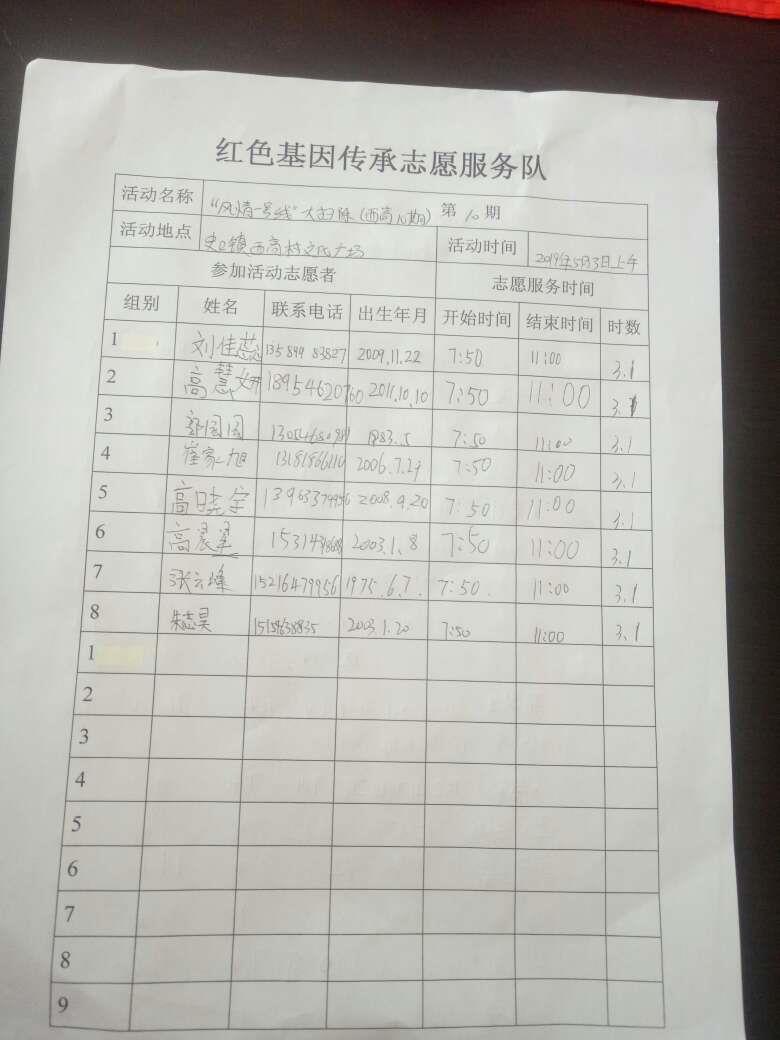 红色基因传承志愿服务队
活动名称 "风情一号线"大扫除(西高 期) 第10期
活动地点 史口镇西高村文化广场 活动时间 2019年5月3日上午
参加活动志愿者 志愿服务时间
组别 姓名 联系电话 出生年月 开始时间 结束时间 时数
1 刘佳蕊 13589983827 2009.11.22 7:50 11:00 3.1
2 高慧妍 18954620760 2011.10.10 7:50 11:00 3.1
3 1983.5 7:50 11:00 3.1
4 崔家旭 13181866110 2006.7.29 7:50 11:00 3.1
5 高晓宇 13963379956 2008.9.20 7:50 11:00 3.1
6 高晨 2003.1.8 7:50 11:00 3.1
7 张云峰 15216479956 1975.6.7. 7:50. 11:00 3.1
8 朱志昊 2003.1.20 7:50 11:00 3.1
1
2
3
4
5
6
7
8
9